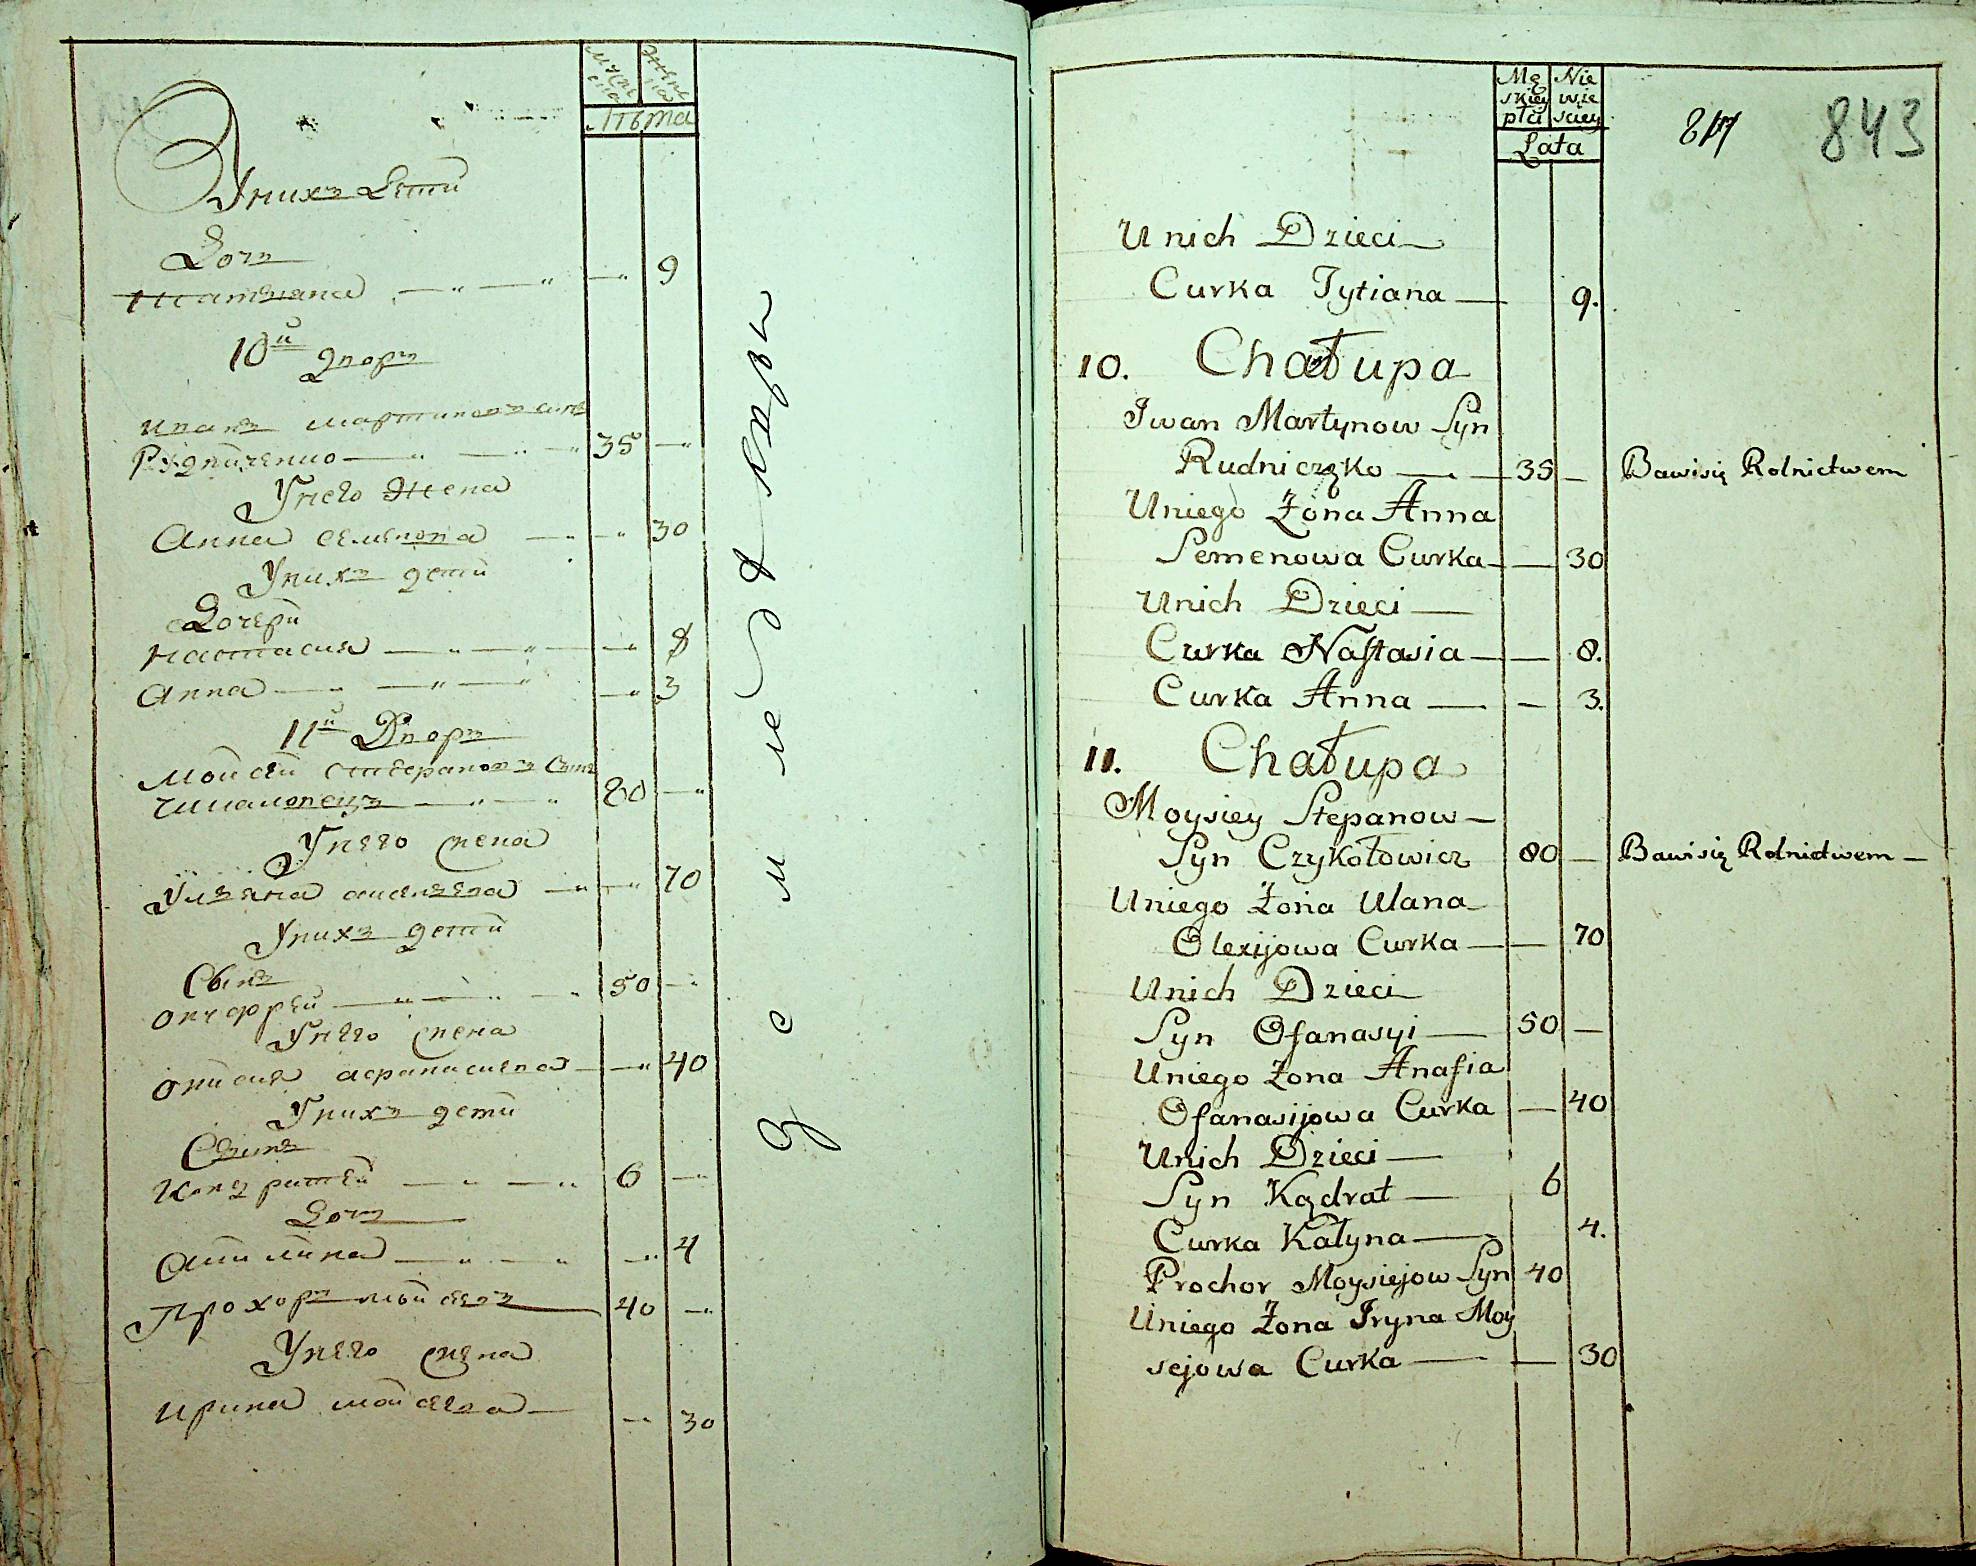 мужска женска
лѣта
У нихъ Дети
Дочь
Татияна 9
10й дворъ
иванъ мартиновъ синъ
Рудниченко 35
У него Жена
Анна семенова 30
У нихъ дети
Дочери
Настасия 8
Анна 3
11й Дворъ
Мойсей Синъ
80
У него жена
Уляна 70
У нихъ дети
Сынъ
50
У него жена
афанасиева 40
У нихъ дети
Сынъ
Кондратей 6
Дочь
4
Прохоръ мойсеевъ 40
У него жена
ирина мойсеева 30
земледелецъ
Mę Nie
skiey wie
płci sciey
Lata
843
Unich Dzieci
Curka Tytiana 9.
10. Chałupa
Iwan Martynow Syn
Rudniczko 35 Bawisię Rolnictwem
Uniego Żona Anna
Semenowa Curka 30
Unich Dzieci
Curka Nastasia 8.
Curka Anna 3.
11. Chałupa
Moysiey Stepanow
Syn Czykołowicz 80 Bawisię Rolnictwem
Uniego Żona Ulana
Olexijowa Curka 70
Unich Dzieci
Syn Ofanasyi 50
Uniego Żona Anasia
Ofanasijowa Curka 40
Unich Dzieci
Syn Kądrat 6
Curka Kałyna 4.
Prochor Moysiejow Syn 40
Uniego Żona Iryna Moy
sejowa Curka 30